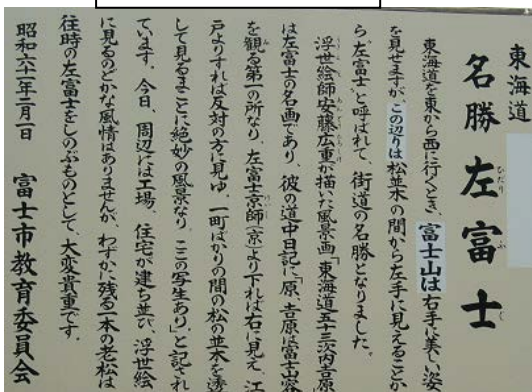 東海道
名勝 左富士
ひだり ふじ
東海道を東から西に行くとき、富士山は右手に美しい姿
を見せますが、この辺りは松並木の間から左手に見えることか
ら“左富士”と呼ばれて、街道の名勝となりました。
浮世絵師安藤広重が描いた風景画「東海道五十三次内吉原
は左富士の名画であり、彼の道中日記に「原、吉原は富士山容
を観る第一の所なり。左富士京師(京)より下れば右に見え、江
戸よりすれば反対の方に見ゆ。一町ばかりの間の松の並木を透
して見るまことに絶妙の風景なり。ここの写生あり」と記され
ています。今日、周辺には工場、住宅が建ち並び、浮世絵
に見るのどかな風情はありませんが、わずかに残る一本の老松は
往時の左富士をしのぶものとして、大変貴重です。
昭和六十一年二月一日 富士市教育委員会